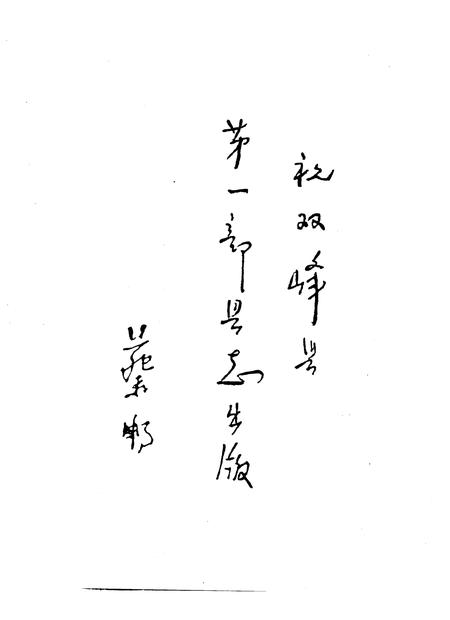 祝双峰县
第一部县志出版
蔡畅